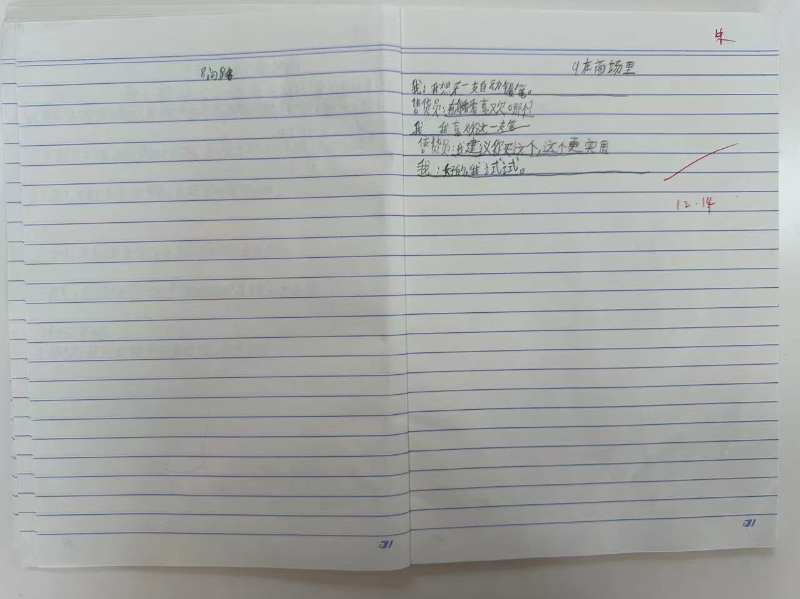 8问路
4在商场里
我：我想买一支自动铅笔。
售货员：看看喜欢哪个
我 我喜欢这一支笔
售货员：我建议你买这个，这个更实用
我：好的我试试。
12.14